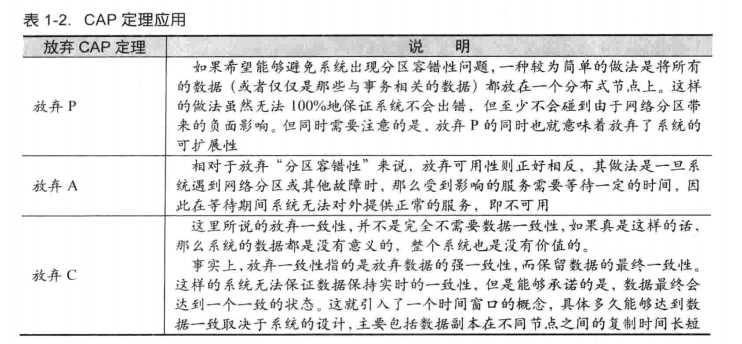 表 1-2. CAP 定理应用
放弃 CAP 定理 说 明
如果希望能够避免系统出现分区容错性问题，一种较为简单的做法是将所有
的数据（或者仅仅是那些与事务相关的数据）都放在一个分布式节点上。这样
放弃 P 的做法虽然无法 100%地保证系统不会出错，但至少不会碰到由于网络分区带
来的负面影响。但同时需要注意的是，放弃 P 的同时也就意味着放弃了系统的
可扩展性
相对于放弃“分区容错性”来说，放弃可用性则正好相反，其做法是一旦系
放弃 A 统遇到网络分区或其他故障时，那么受到影响的服务需要等待一定的时间，因
此在等待期间系统无法对外提供正常的服务，即不可用
这里所说的放弃一致性，并不是完全不需要数据一致性，如果真是这样的话，
那么系统的数据都是没有意义的，整个系统也是没有价值的。
放弃 C 事实上，放弃一致性指的是放弃数据的强一致性，而保留数据的最终一致性。
这样的系统无法保证数据保持实时的一致性，但是能够承诺的是，数据最终会
达到一个一致的状态。这就引入了一个时间窗口的概念，具体多久能够达到数
据一致取决于系统的设计，主要包括数据副本在不同节点之间的复制时间长短